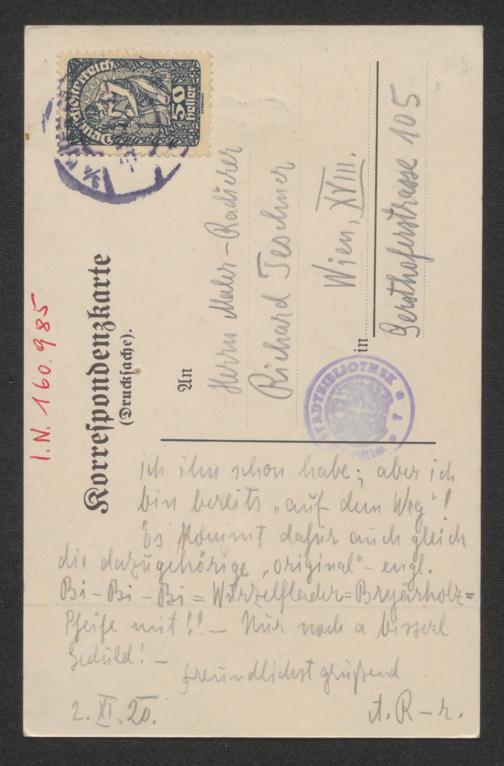 Deutschösterreich
50
Heller
Korrespondenzkarte
(Drucksache).
An
Herrn Maler-Radierer
Richard Teschner
in
Wien, XVIII.
Gersthoferstrasse 105
I.N. 160.985
STADTBIBLIOTHEK
ich ihn schon habe; aber ich
bin bereits „auf dem Weg"!
Es kommt dafür auch gleich
die dazugehörige „original"- engl.
Bi-Bi-Bi=Wurzelflader=Bryärholz=
Pfeife mit!! — Nur noch a bisserl
Geduld! —
freundlichst grüßend
2. XI. 20.
A. R-r.